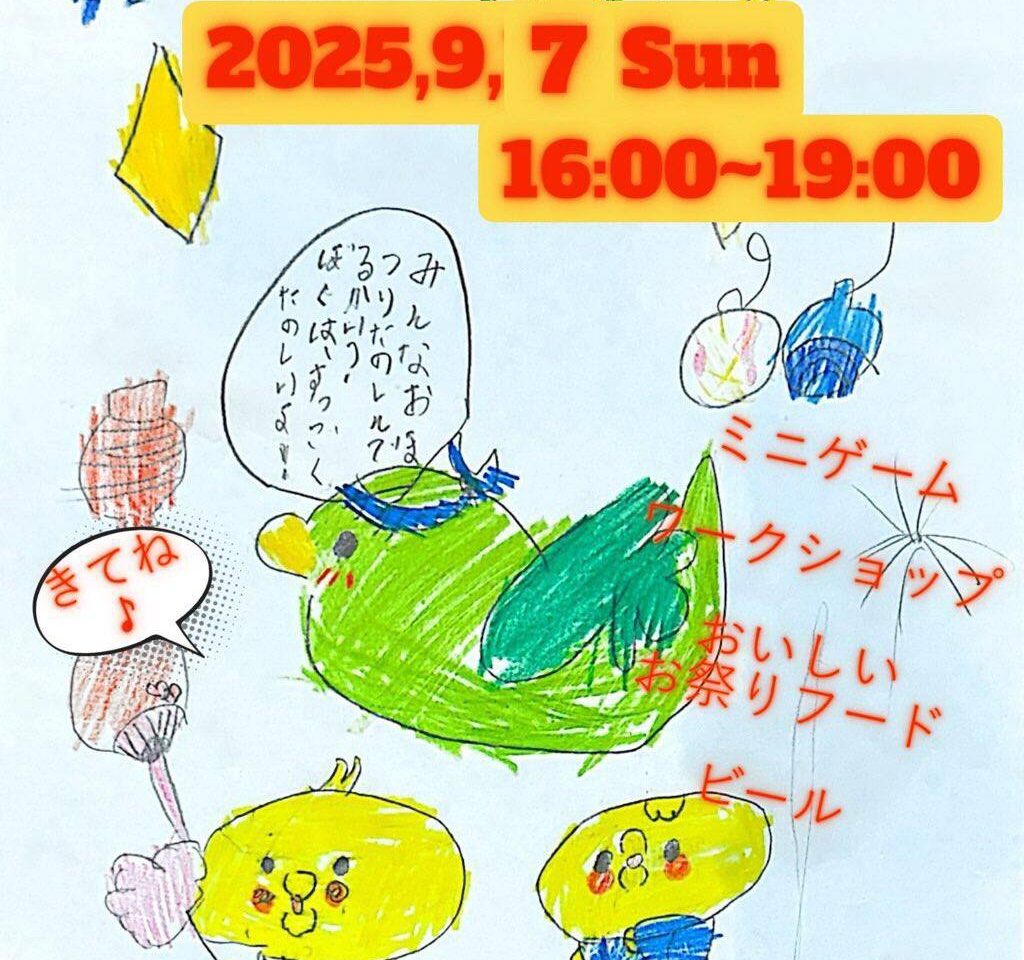 2025,9, 7 Sun
16:00~19:00
みんなおま
つりたのしんで
るかい?
ぼくは、すっごく
たのしいよ!!
ミニゲーム
ワークショップ
きてね
♪
おいしい
お祭りフード
ビール